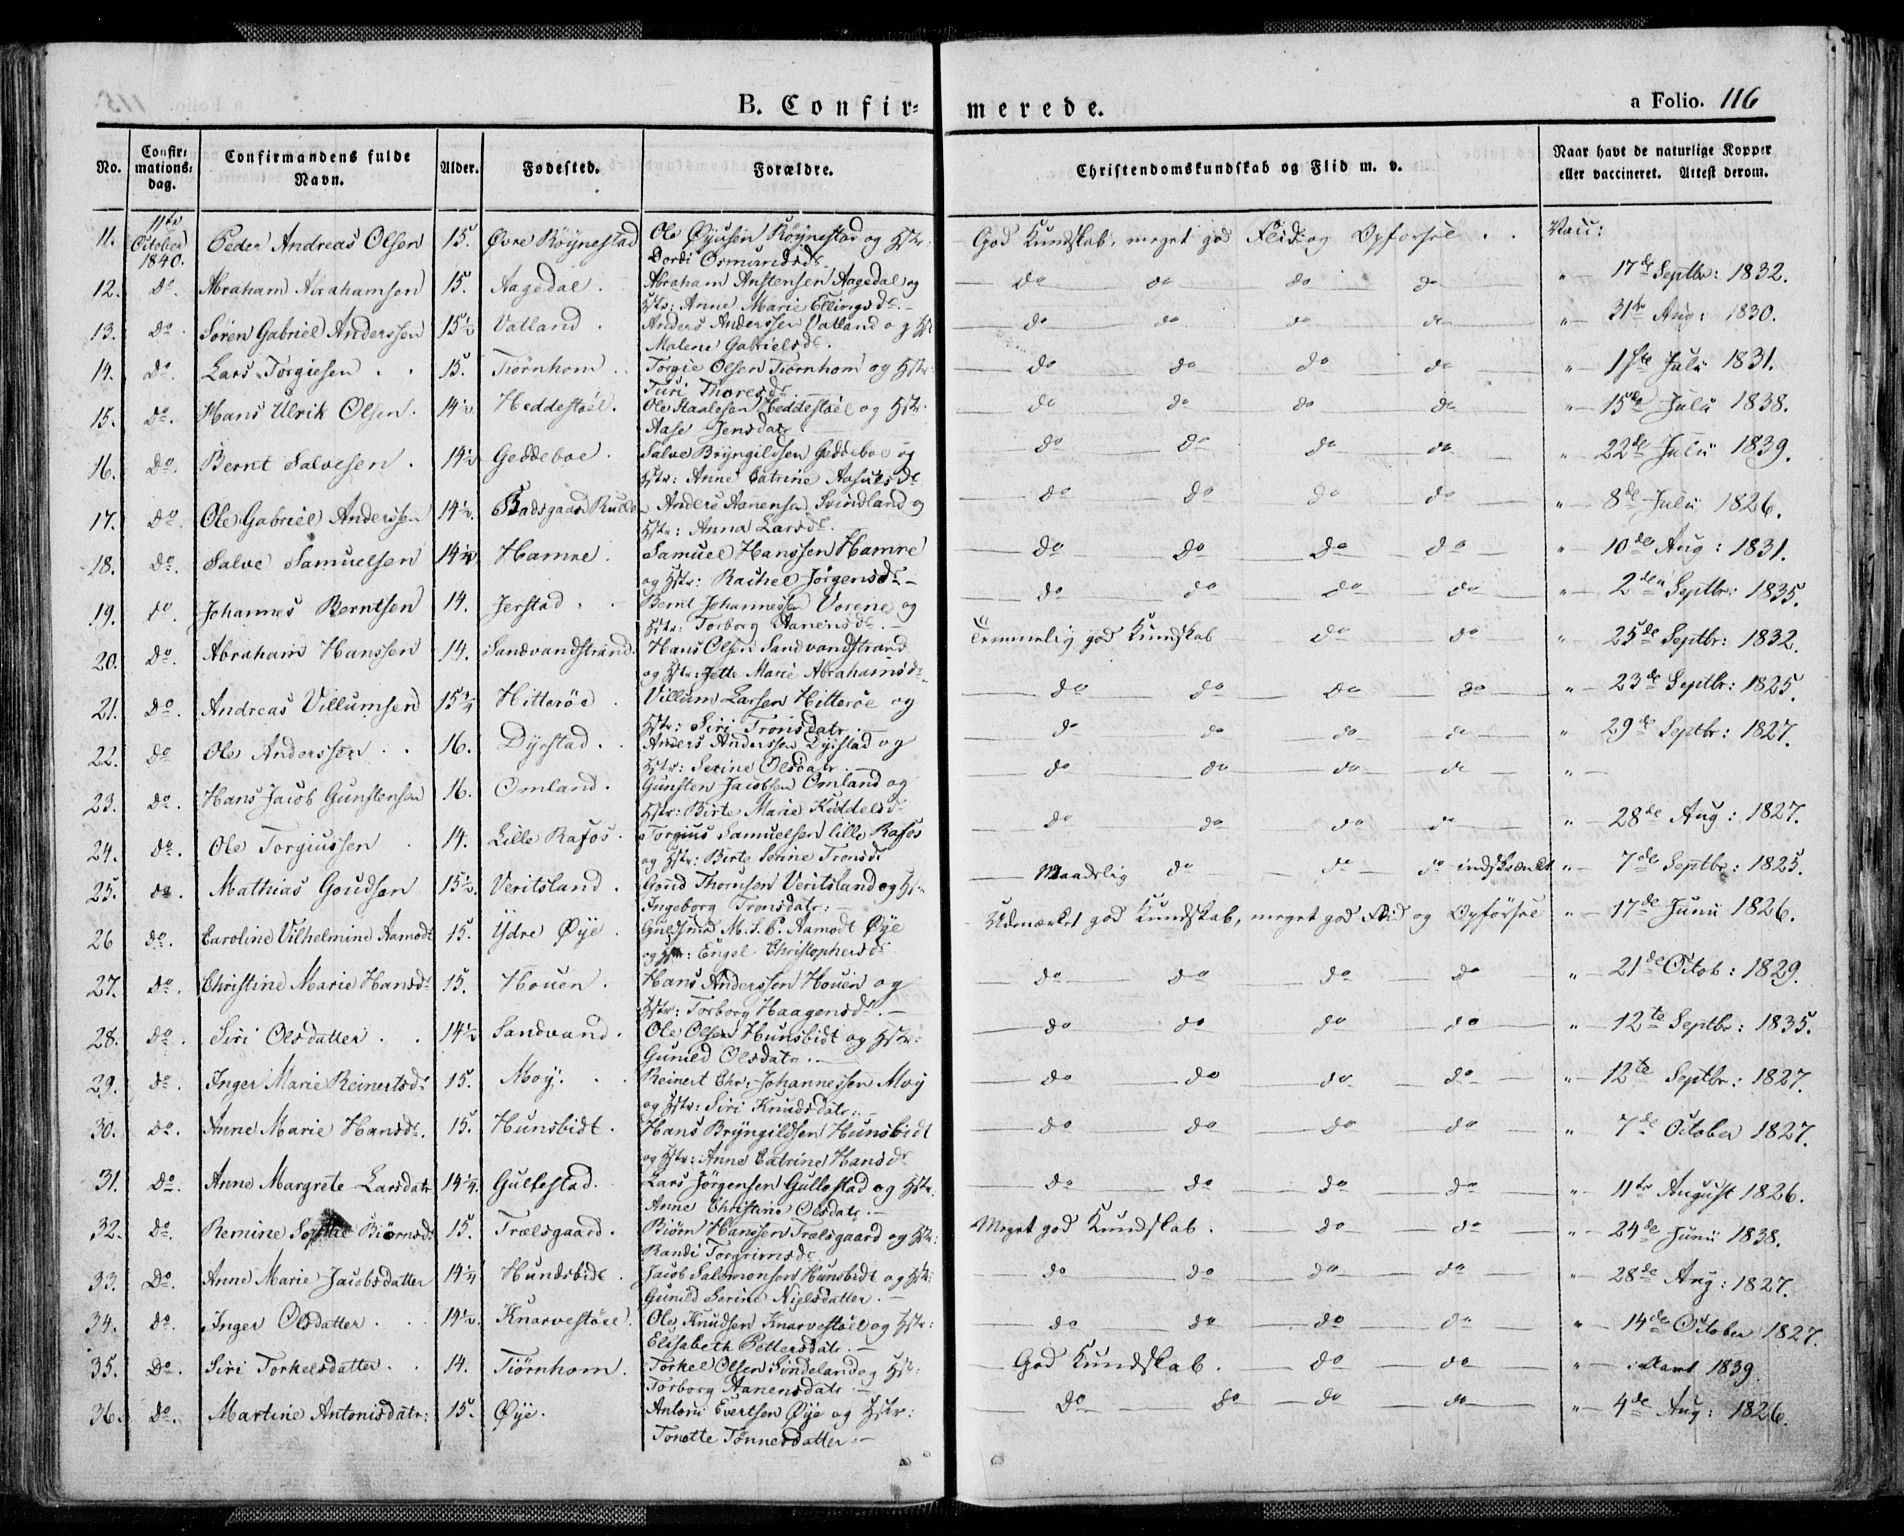 B. Confirmerede. a Folio. 116
No. Confirmationsdag. Confirmandens fulde Navn. Alder. Fødested. Forældre. Christendomskundskab og Flid m. v. Naar havt de naturlige Kopper eller vaccineret. Attest derom.
11. 11te October 1840. Peder Andreas Olsen 15. Øvre Röÿnestad Ole Röÿnestad og Hstr: Dordi Osmundsdr God Kundskab, meget god Flid og Opførsel . . Vacc: " 17de Septbr: 1832.
12. do. Abraham Abrahamsen 15. Aagedal. Abraham Anstensen Aagedal og Hstr: Anne Marie Ellingsdr. do do do do " 31te Aug: 1830.
13. do. Søren Gabriel Anderssen 15½ Vatland. Anders Anderssen Vatland og Hstr Malene Gabrielsdr. do do do do " 1ste Julii 1831.
14. do. Lars Torgiesen . . 15. Tiørnhom . Torgie Olsen Tiørnhom og Hstr: Turi Thoresdr do do do do " 15de Julii 1838.
15. do. Hans Ulrik Olsen. 14½ Heddestøel. Ole Staalesen Heddestøel og Hstr: Aase Jensdatr. do do do do " 22de Julii 1839.
16. do. Bernt Salvesen . 14½ Geddeboe. Salve Bryngildsen Geddeboe og Hstr: Anne Catrine Aasulsdr do do do do " 8de Julii 1826.
17. do. Ole Gabriel Anderssen 14½. Anders Aanensen Svindland og Hstr: Anna Larsdr. do do do do " 10de Aug: 1831.
18. do. Salve Samuelsen 14½ Hamre. Samuel Hanssen Hamre og Hstr: Rachel Jørgensdr do do do do " 2den Septbr: 1835.
19. do Johannes Berntsen 14. Jerstad . Bernt Johannessen Vorene og Hstr: Torborg Aanensdr. Temmelig god Kundskab do do " 25de Septbr: 1832.
20. do. Abraham Hanssen 14. Sandvandstrand. Hans Olsen Sandvandstrand og Hstr: Jette Marie Abrahamsdr do do do do " 23de Septbr: 1825.
21. do. Andreas Villumsen 15¾ Hitterøe . Villum Larsen Hitterøe og Hstr: Siri Tronsdatr do do do do " 29de Septbr: 1827.
22. do Ole Anderssen . . 16. Dÿrstad . Anders Anderssen Dÿrstad og Hstr: Serine Olsdatr do do do do "
23. do. Hans Jacob Gunstensen 16. Omland. Gunsten Jacobsen Omland og Hstr: Birte Marie Kiddelsdr do do do do " 28de Aug: 1827.
24. do. Ole Torgiussen . 14. Lille Rafos . Torgius Samuelsen lille Rafos og Hstr: Birte Serine Tronsdr Maadelig do do do indskrænkt " 7de Septbr: 1825.
25. do. Mathias Goudsen 15½. Veritsland . Goud Thomsen Veritsland og Hstr Ingeborg Tronsdatr: Udmærket god Kundskab, meget god Flid og Opførsel " 17de Junii 1826.
26 do. Caroline Vilhelmine Aamodt 15. Ydre Øÿe . Guldsmed M. S. P. Aamodt Øÿe og Hstr: Engel Christophersdr do do do do " 21de Octob: 1829.
27. do. Christine Marie Hansdr 15. Houen . Hans Anderssen Houen og Hstr: Torborg Haagensdr. do do do do " 12te Septbr: 1835.
28. do. Siri Olsdatter . . 14½ Sandvand. Ole Olsen Hunsbidt og Hstr: Gunild Olsdatr. do do do do " 12te Septbr: 1827.
29. do. Inger Marie Reinertsdr 15. Moÿ. . Reinert Chr. Johannessen Moÿ og Hstr: Siri Knudsdatr: do do do do " 7de October 1827.
30. do. Anne Marie Hansdr. 15. Hunsbidt . Hans Bryngildsen Hunsbidt og Hstr: Anne Catrine Hansdr do do do do " 11te August 1826.
31. do. Anne Margrete Larsdatr 14¼. Gullestad. Lars Jørgensen Gullestad og Hstr. Anne Christine Olsdatr. Meget god Kundskab . do do " 24de Junii 1838.
32. do. Remine Sophie Biørnsdr 15. Trælsgaard. Biørn Hanssen Trælsgaard og Hstr: Randi Torgrimsdr do do do do " 28de Aug: 1827.
33. do. Anne Marie Jacobsdatter 14¼ Hundsbidt . Jacob Salomonsen Hunsbidt og Hstr: Gunild Serine Nielsdatter. do do do do " 14de October 1827.
34. do. Inger Olsdatter . . 14½. Knarvestøel. Ole Knudsen Knarvestøel og Hstr: Elisabeth Pettersdatr. God Kundskab . do do " i Aaret 1839.
35. do. Siri Torkelsdatter . 14. Tiørnhom. Torkel Olsen Sindeland og Hstr: Torborg Aanensdatr do do do do " 4de Aug: 1826.
36. do. Martine Antonisdatr: 15. Øÿe. Antoni Evertsen Øÿe og Hstr: Tonette Tønnesdatter.